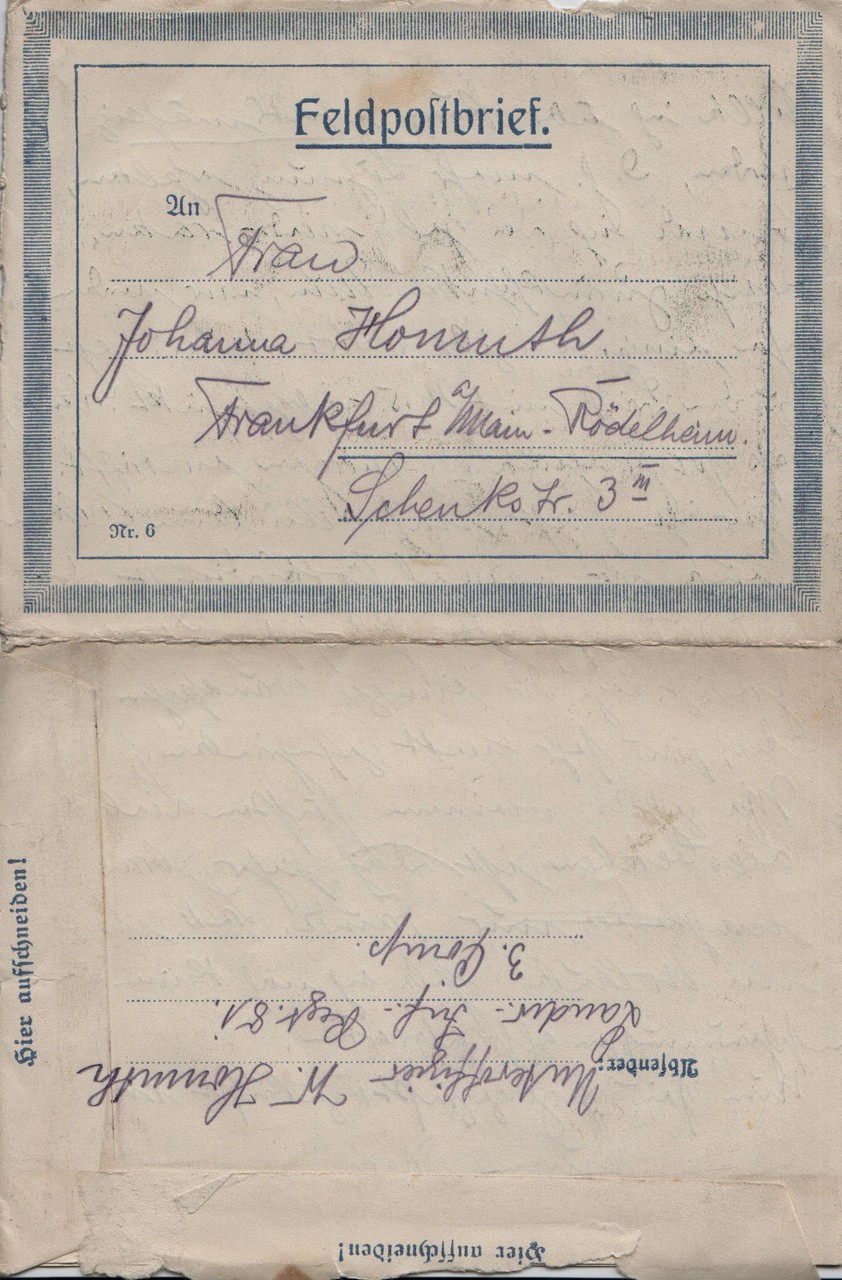 Feldpostbrief.
An
Frau
Johanna Homuth
Frankfurt a/Main - Rödelheim.
Schenkstr. 3 III
Nr. 6
Hier aufschneiden!
Absender: Unteroffizier W. Homuth
Landw.-Inf.-Regt. 81.
3. Comp.
Hier aufschneiden!